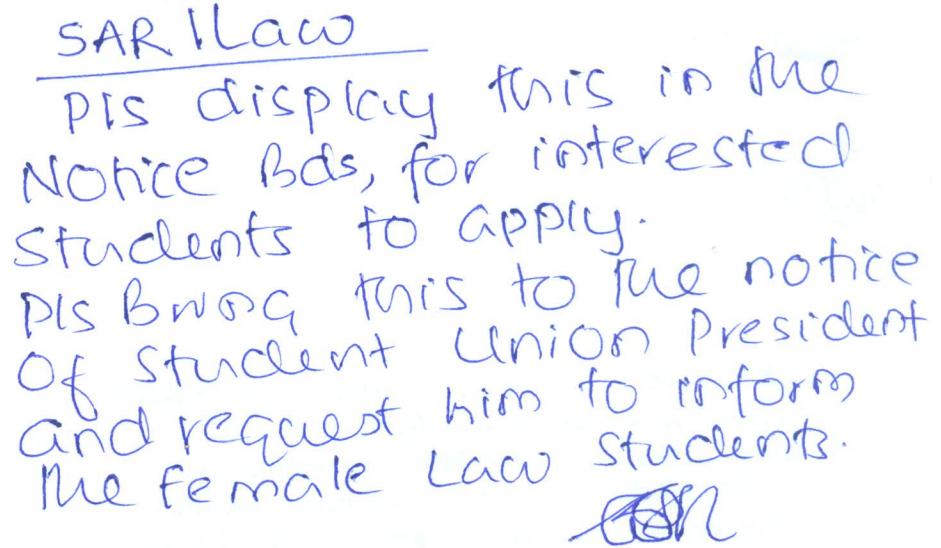 SAR / Law
Pls display this in the
Notice Bds, for interested
students to apply.
Pls Bring this to the notice
Of student Union President
and request him to inform
the female Law students.